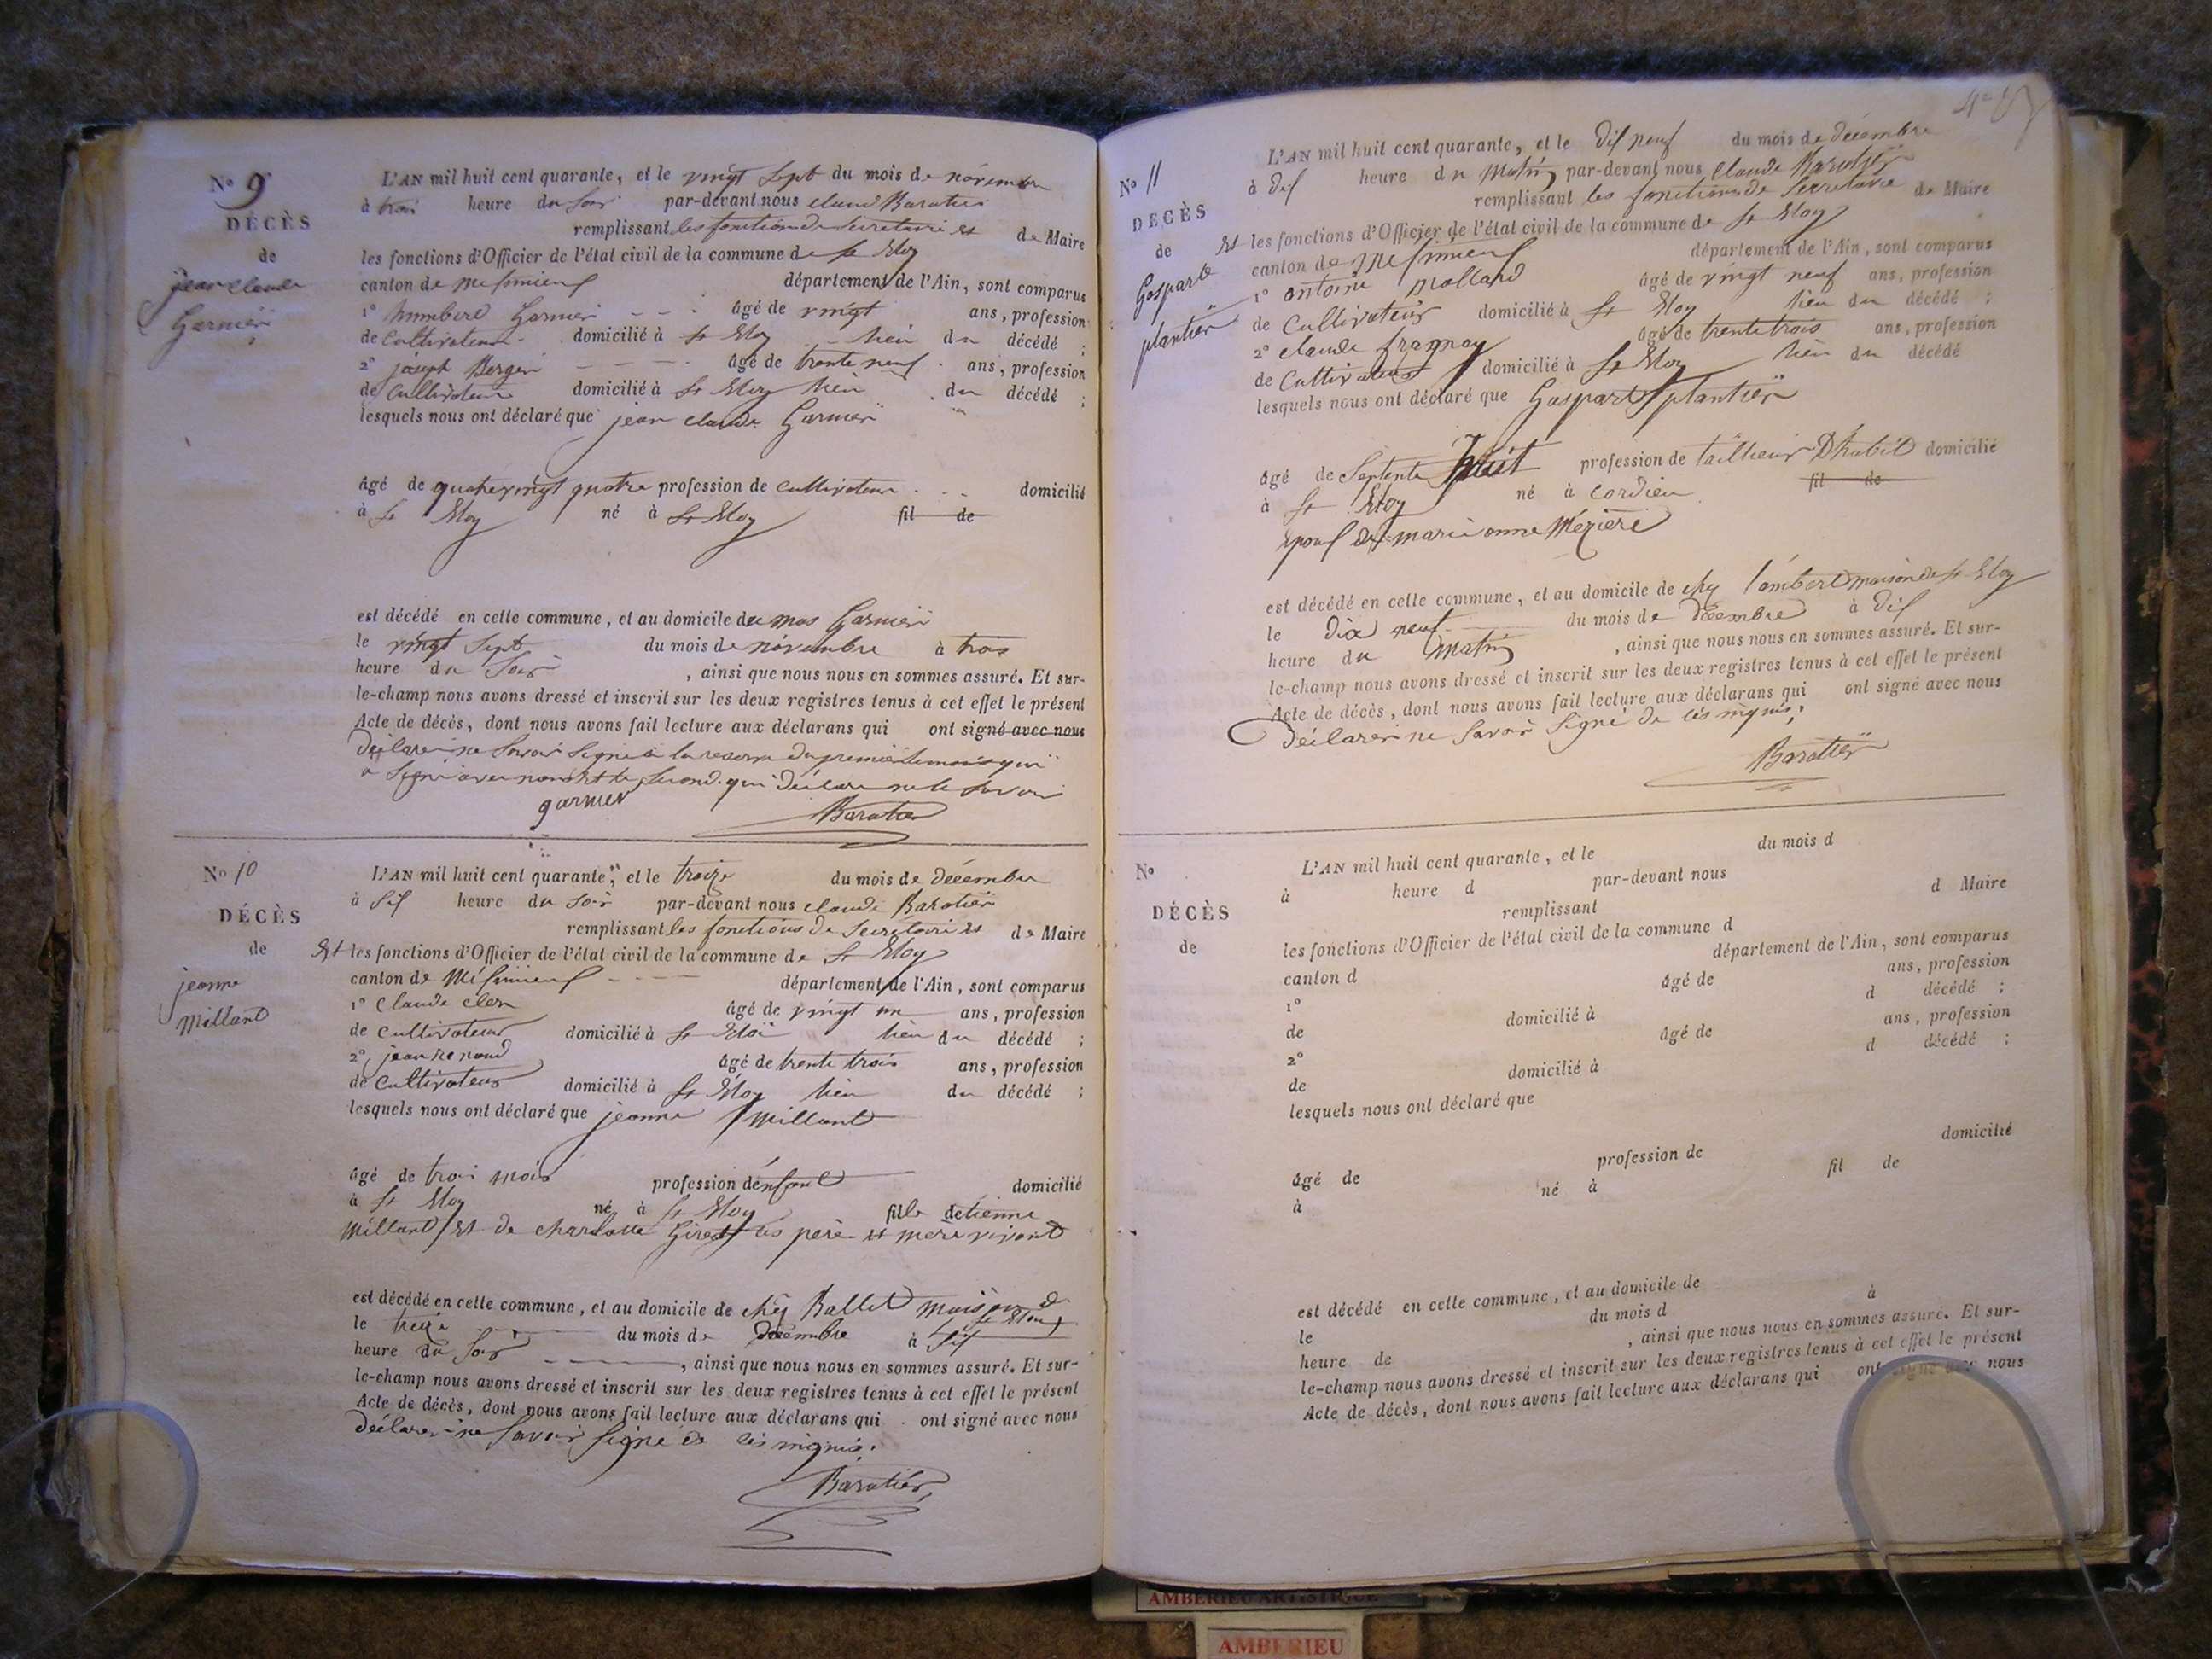 No 9
DÉCÈS
de
jean claude
Garnier
L'AN mil huit cent quarante, et le vingt sept du mois de novembre
à trois heure du soir par-devant nous claud Baratier
remplissant les fonction de secretaire et de Maire
les fonctions d'Officier de l'état civil de la commune de st Eloy
canton de meximieux département de l'Ain, sont comparus
1° humbert Garnier âgé de vingt ans, profession
de cultivateur domicilié à st Eloy du décédé ;
2° joseph Berger âgé de trente neuf ans, profession
de cultivateur domicilié à st Eloy du décédé ;
lesquels nous ont déclaré que jean claude Garnier
âgé de quatrevingt quatre profession de cultivateur domicilié
à st Eloy né à st Eloy fil de
est décédé en cette commune, et au domicile du mas Garnier
le vingt sept du mois de novembre à trois
heure du soir , ainsi que nous nous en sommes assuré. Et sur-
le-champ nous avons dressé et inscrit sur les deux registres tenus à cet effet le présent
Acte de décès, dont nous avons fait lecture aux déclarans qui ont signé avec nous
déclarer ne savoir signé a la reserve du premier temois qui
a signé avec nous et le second qui déclare ne le savoir
garnier Baratier
No 10
DÉCÈS
de
jeanne
Millant
L'AN mil huit cent quarante, et le treize du mois de décembre
à six heure du soir par-devant nous claude Baratier
remplissant les fonctions de secretaire et de Maire
Et les fonctions d'Officier de l'état civil de la commune de st Eloy
canton de Meximieux département de l'Ain, sont comparus
1° claude âgé de vingt un ans, profession
de cultivateur domicilié à st Eloi du décédé ;
2° jean renaud âgé de trente trois ans, profession
de cultivateur domicilié à st Eloy du décédé ;
lesquels nous ont déclaré que jeanne Millant
âgé de trois mois profession d'enfant domicilié
à st Eloy né à st Eloy fille detienne
Millant Et de charlotte ses père et mère vivant
est décédé en cette commune, et au domicile de chez Ballet maison de
st Eloy
le treize du mois de décembre à six
heure du soir , ainsi que nous nous en sommes assuré. Et sur-
le-champ nous avons dressé et inscrit sur les deux registres tenus à cet effet le présent
Acte de décès, dont nous avons fait lecture aux déclarans qui ont signé avec nous
déclarer ne savoir signé de ces requis.
Baratier
No 11
DÉCÈS
de
Gaspard
plantier
L'AN mil huit cent quarante, et le dix neuf du mois de décembre
à dix heure du matin par-devant nous claude Baratier
remplissant les fonctions de secretaire de Maire
Et les fonctions d'Officier de l'état civil de la commune de st Eloy
canton de meximieux département de l'Ain, sont comparus
1° antoine mollard âgé de vingt neuf ans, profession
de cultivateur domicilié à st Eloy du décédé ;
2° claude framay âgé de trente trois ans, profession
de cultivateur domicilié à st Eloy du décédé
lesquels nous ont déclaré que Gaspard plantier
âgé de septente huit profession de tailleur D'habit domicilié
à st Eloy né à cordieu fil de
Epoux de marie anne Mézière
est décédé en cette commune, et au domicile de chez lambert maison de st Eloy
le dix neuf du mois de décembre à dix
heure du matin , ainsi que nous nous en sommes assuré. Et sur-
le-champ nous avons dressé et inscrit sur les deux registres tenus à cet effet le présent
Acte de décès, dont nous avons fait lecture aux déclarans qui ont signé avec nous
déclarer ne savoir signé de ces requis.
Baratier
No
DÉCÈS
de
L'AN mil huit cent quarante, et le du mois d
à heure d par-devant nous
remplissant d Maire
les fonctions d'Officier de l'état civil de la commune d
canton d département de l'Ain, sont comparus
1° âgé de ans, profession
de domicilié à d décédé ;
2° âgé de ans, profession
de domicilié à d décédé ;
lesquels nous ont déclaré que
âgé de profession de domicilié
à né à fil de
est décédé en cette commune, et au domicile de
le du mois d à
heure de , ainsi que nous nous en sommes assuré. Et sur-
le-champ nous avons dressé et inscrit sur les deux registres tenus à cet effet le présent
Acte de décès, dont nous avons fait lecture aux déclarans qui ont signé avec nous
AMBERIEU ARTISTIQUE
AMBERIEU